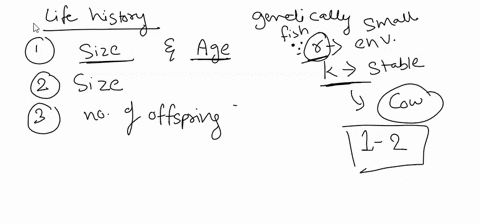 Life history
① Size & Age
② Size
③ no. of offspring
genetically
fish
r → small
env.
k → stable
Cow
1-2